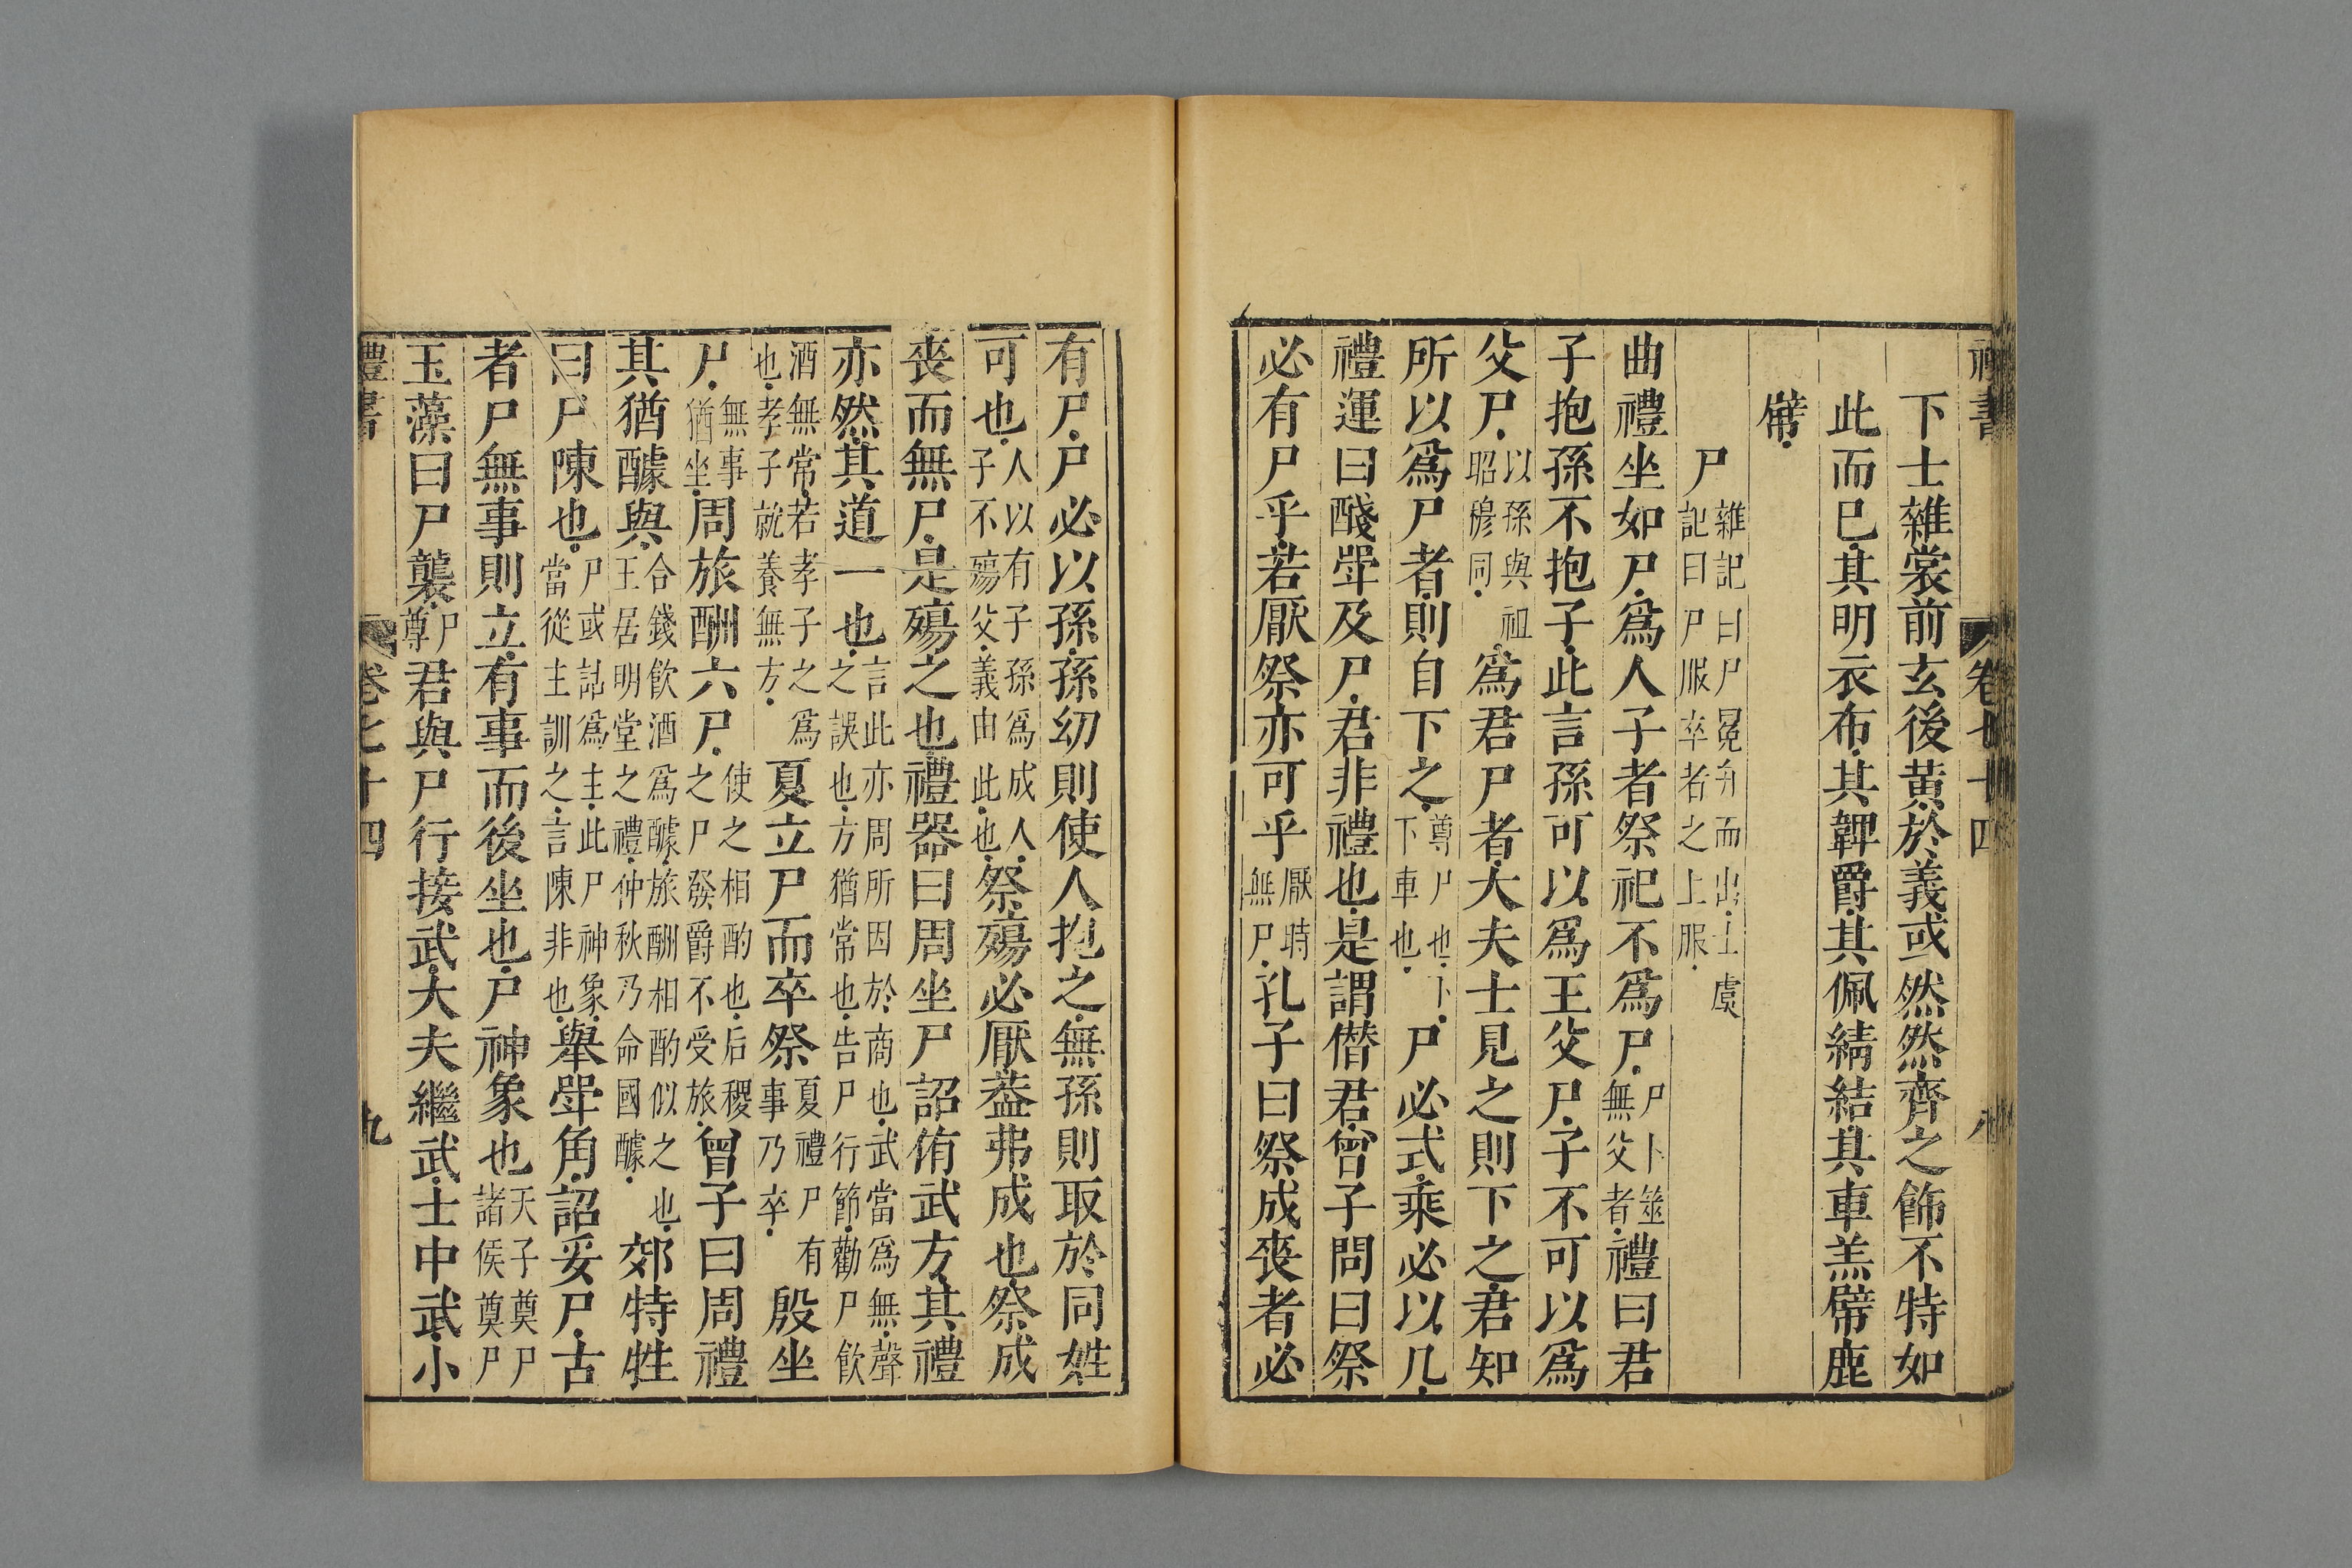 禮書 卷七十四 八
下士雜裳前玄後黃於義或然然齊之飾不特如
此而已其明衣布其韠爵其佩綪結其車羔幦鹿
幦
尸 雜記曰尸冕弁而出士虞
記曰尸服卒者之上服
曲禮坐如尸爲人子者祭祀不爲尸 尸卜筮
無父者 禮曰君
子抱孫不抱子此言孫可以爲王父尸子不可以爲
父尸 以孫與祖
昭穆同 爲君尸者大夫士見之則下之君知
所以爲尸者則自下之 尊尸也下
下車也 尸必式乘必以几
禮運曰醆斝及尸君非禮也是謂僭君曾子問曰祭
必有尸乎若厭祭亦可乎 厭時
無尸 孔子曰祭成喪者必
有尸尸必以孫孫幼則使人抱之無孫則取於同姓
可也 人以有子孫爲成人
子不殤父義由此也 祭殤必厭葢弗成也祭成
喪而無尸是殤之也禮器曰周坐尸詔侑武方其禮
亦然其道一也 言此亦周所因於商也武當爲無聲
之誤也方猶常也告尸行節勸尸飲
酒無常若孝子之爲
也孝子就養無方 夏立尸而卒祭 夏禮尸有
事乃卒 殷坐
尸 無事
猶坐 周旅酬六尸 使之相酌也后稷
之尸發爵不受旅 曾子曰周禮
其猶醵與 合錢飲酒爲醵旅酬相酌似之也
王居明堂之禮仲秋乃命國醵 郊特牲
曰尸陳也 尸或詁爲主此尸神象
當從主訓之言陳非也 舉斝角詔妥尸古
者尸無事則立有事而後坐也尸神象也 天子奠尸
諸侯奠尸
玉藻曰尸襲 尸
尊 君與尸行接武大夫繼武士中武小
禮書 卷七十四 九